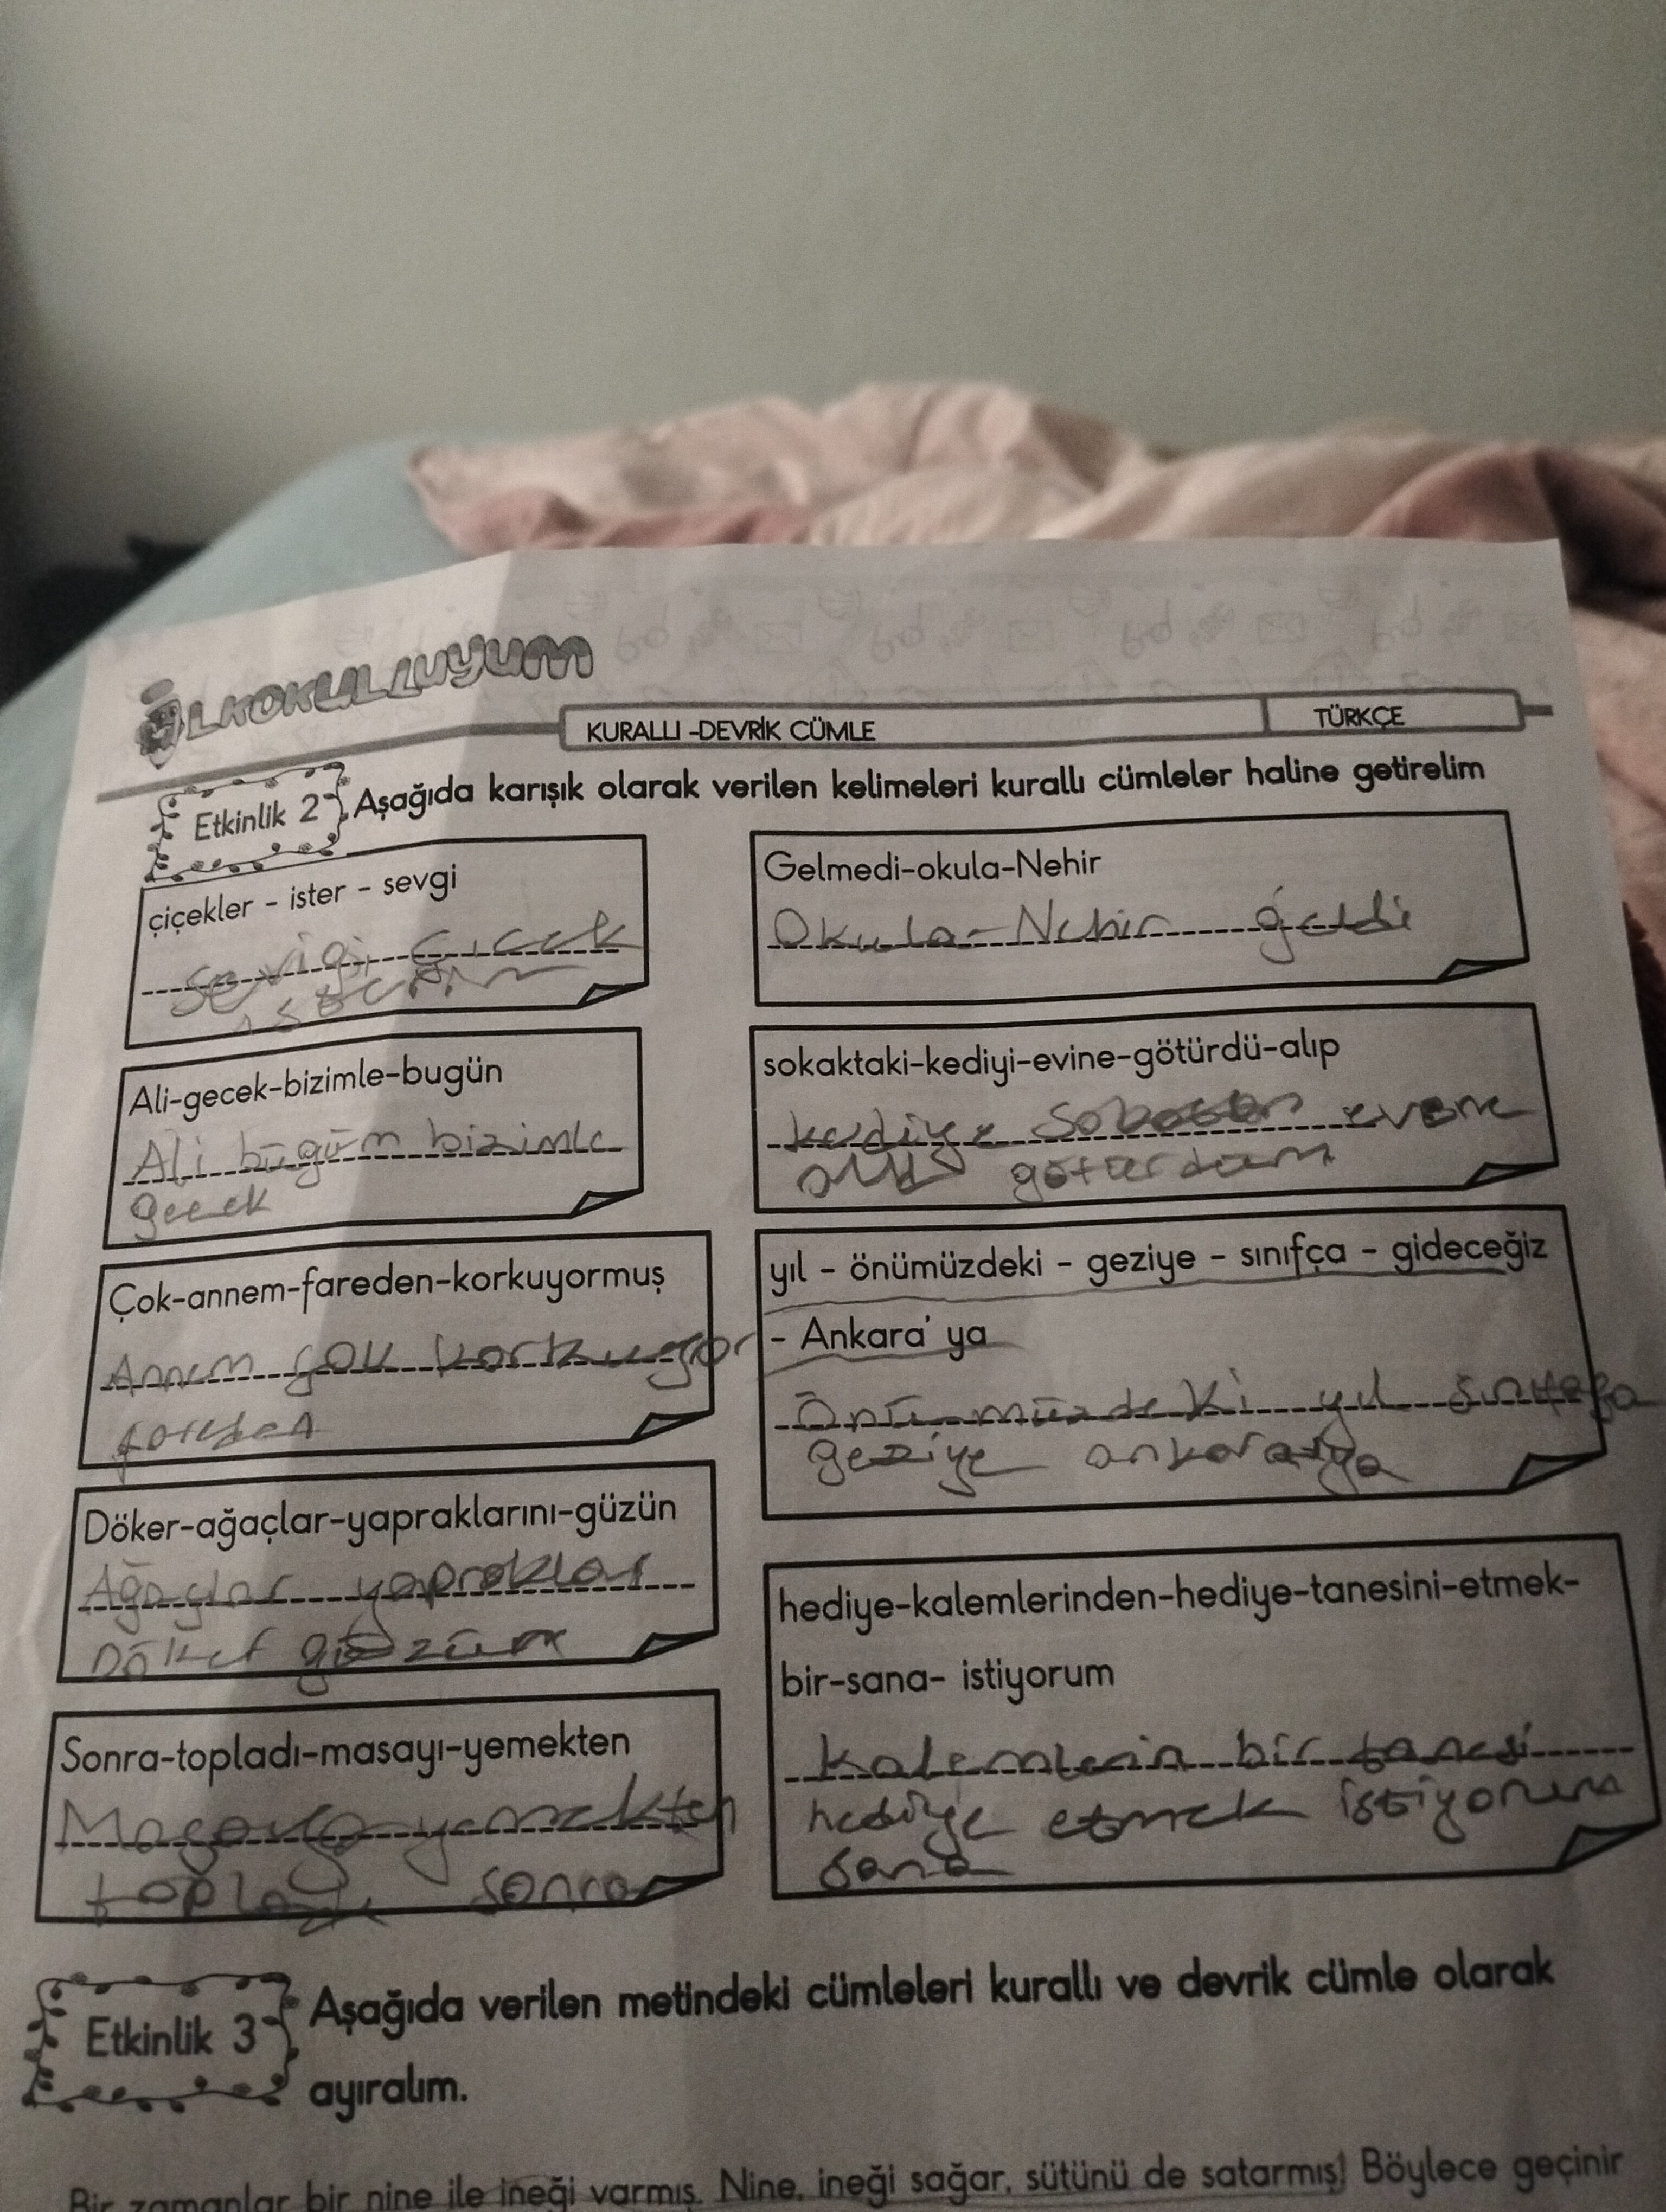 İLKOKULLUYUM
KURALLI -DEVRİK CÜMLE
TÜRKÇE
Etkinlik 2 Aşağıda karışık olarak verilen kelimeleri kurallı cümleler haline getirelim
çiçekler - ister - sevgi
Ali-gecek-bizimle-bugün
Ali bügün bizimle
gecek
Çok-annem-fareden-korkuyormuş
Annem çok korkuyor
Döker-ağaçlar-yapraklarını-güzün
Ağaçlar yapraklar
Döker güzün
Sonra-topladı-masayı-yemekten
yemekten
sonra
Gelmedi-okula-Nehir
Okula-Nehir geldi
sokaktaki-kediyi-evine-götürdü-alıp
kediye
yıl - önümüzdeki - geziye - sınıfça - gideceğiz
- Ankara'ya
Önümüzdeki yıl
geziye ankaraya
hediye-kalemlerinden-hediye-tanesini-etmek-
bir-sana- istiyorum
Kalemlerin bir tanesi
hediye etmek istiyorum
sana
Etkinlik 3 Aşağıda verilen metindeki cümleleri kurallı ve devrik cümle olarak
ayıralım.
Bir zamanlar bir nine ile ineği varmış. Nine, ineği sağar, sütünü de satarmış! Böylece geçinir